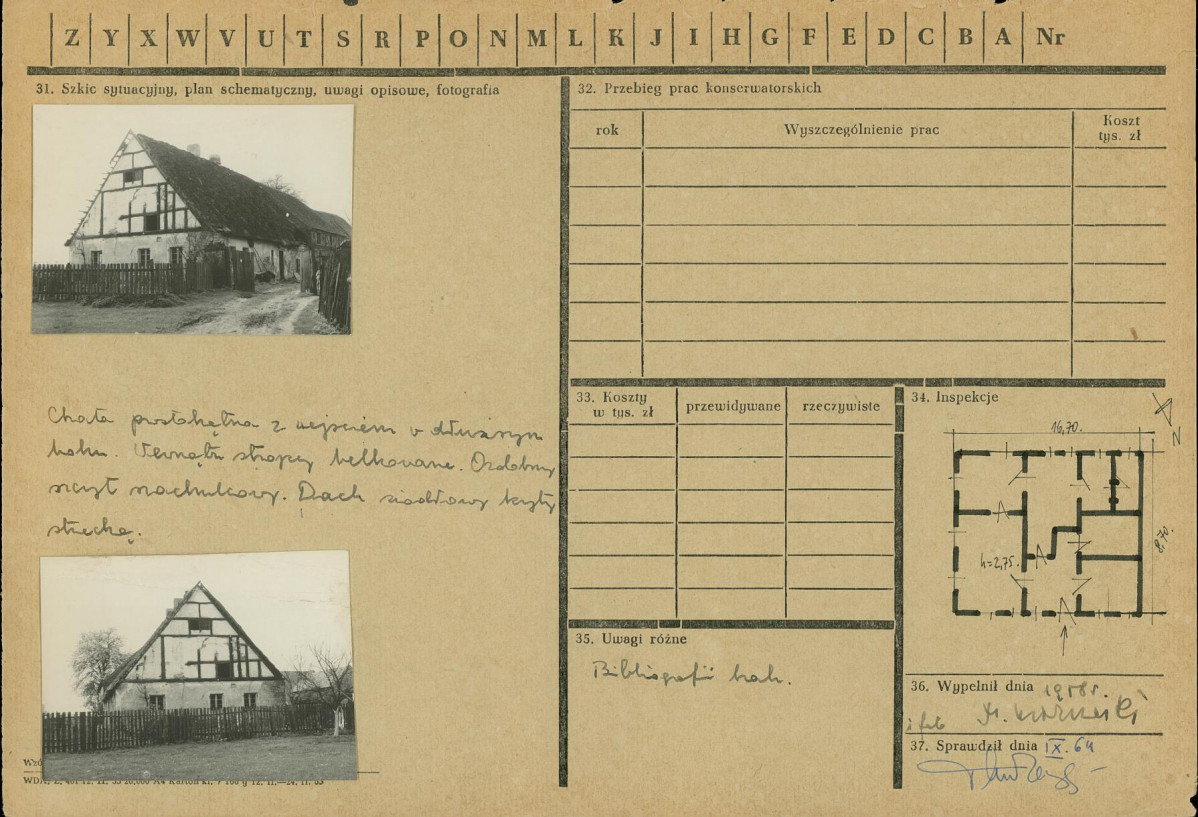 Z Y X W V U T S R P O N M L K J I H G F E D C B A Nr
31. Szkic sytuacyjny, plan schematyczny, uwagi opisowe, fotografia
Chata prostokątna z wejściem w dłuższym
boku. Wewnątrz stropy belkowane. Ozdobny
szczyt szachulcowy. Dach siodłowy kryty
strzechą.
WDA.
32. Przebieg prac konserwatorskich
rok Wyszczególnienie prac Koszt
tys. zł
33. Koszty
w tys. zł przewidywane rzeczywiste
34. Inspekcje
N
16,70.
8,70.
h=2,75.
35. Uwagi różne
Bibliografii brak.
36. Wypełnił dnia 1958r.
i fot
37. Sprawdził dnia IX. 64